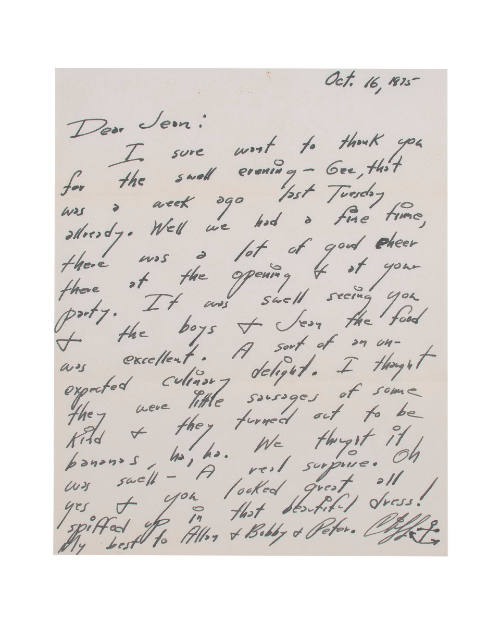 Oct. 16, 1975
Dear Jean:
I sure want to thank you
for the swell evening – Gee, that
was a week ago last Tuesday
allready. Well we had a fine time,
there was a lot of good cheer
there at the opening & at your
party. It was swell seeing you
& the boys & Jean the food
was excellent. A sort of an un-
expected culinary delight. I thought
they were little sausages of some
kind & they turned out to be
bananas, ha, ha. We thught it
was swell – A real surprise. Oh
yes & you looked great all
spiffed up in that beautiful dress!
My best to Allan & Bobby & Peter. Cliff